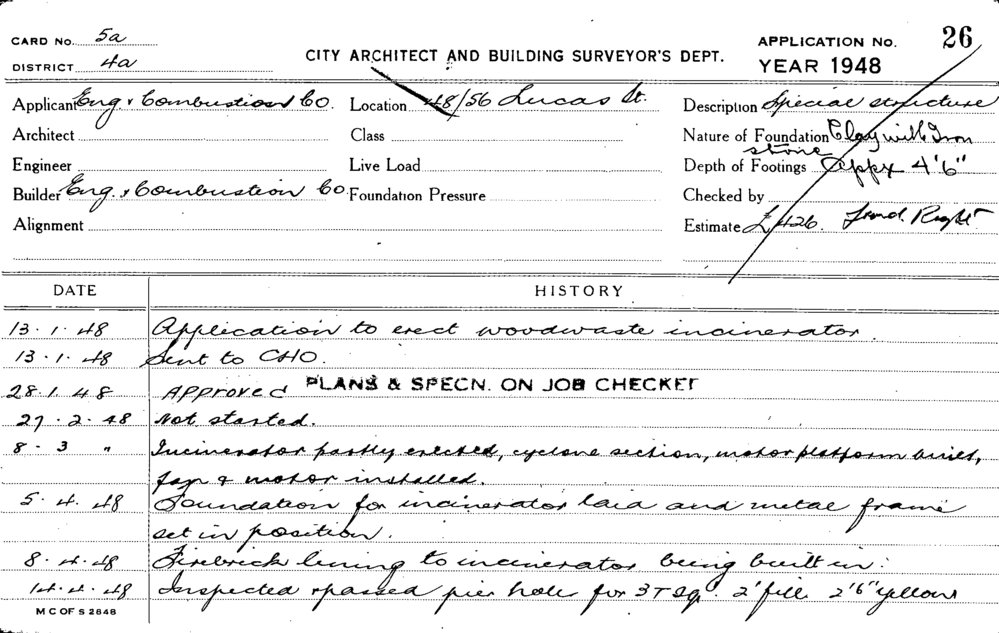 CARD No. 5a
DISTRICT 4a
CITY ARCHITECT AND BUILDING SURVEYOR'S DEPT.
APPLICATION No. 26
YEAR 1948
Applicant Eng. & Combustion Co.
Location 48/56 Lucas St.
Description Special structure
Architect
Class
Nature of Foundation Clay with Iron
stone
Engineer
Live Load
Depth of Footings Appx 4'6"
Builder Eng. & Combustion Co.
Foundation Pressure
Checked by
Alignment
Estimate £426.
DATE HISTORY
13.1.48 Application to erect woodwaste incinerator.
13.1.48 Sent to CHO.
28.1.48 Approved PLANS & SPECN. ON JOB CHECKET
27.2.48 Not started.
8-3 " Incinerator partly erected, cyclone section, motor platform built,
fan & motor installed.
5.4.48 Foundation for incinerator laid and metal frame
set in position.
8.4.48 Firebrick lining to incinerator being built in.
14.4.48 Inspected & passed pier hole for 2' fill 2'6" yellow
M C OF S 2848